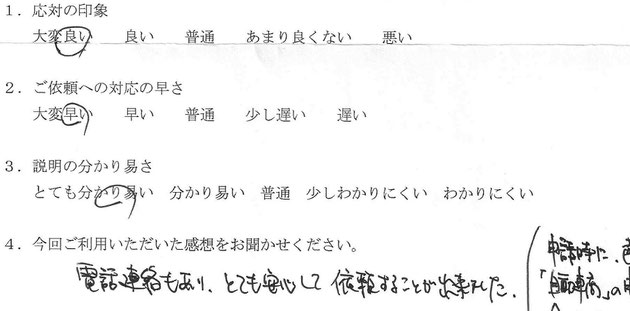 1．応対の印象
大変良い　良い　普通　あまり良くない　悪い
2．ご依頼への対応の早さ
大変早い　早い　普通　少し遅い　遅い
3．説明の分かり易さ
とても分かり易い　分かり易い　普通　少しわかりにくい　わかりにくい
4．今回ご利用いただいた感想をお聞かせください。
電話連絡もあり、とても安心して依頼することが出来ました。
申請時に、